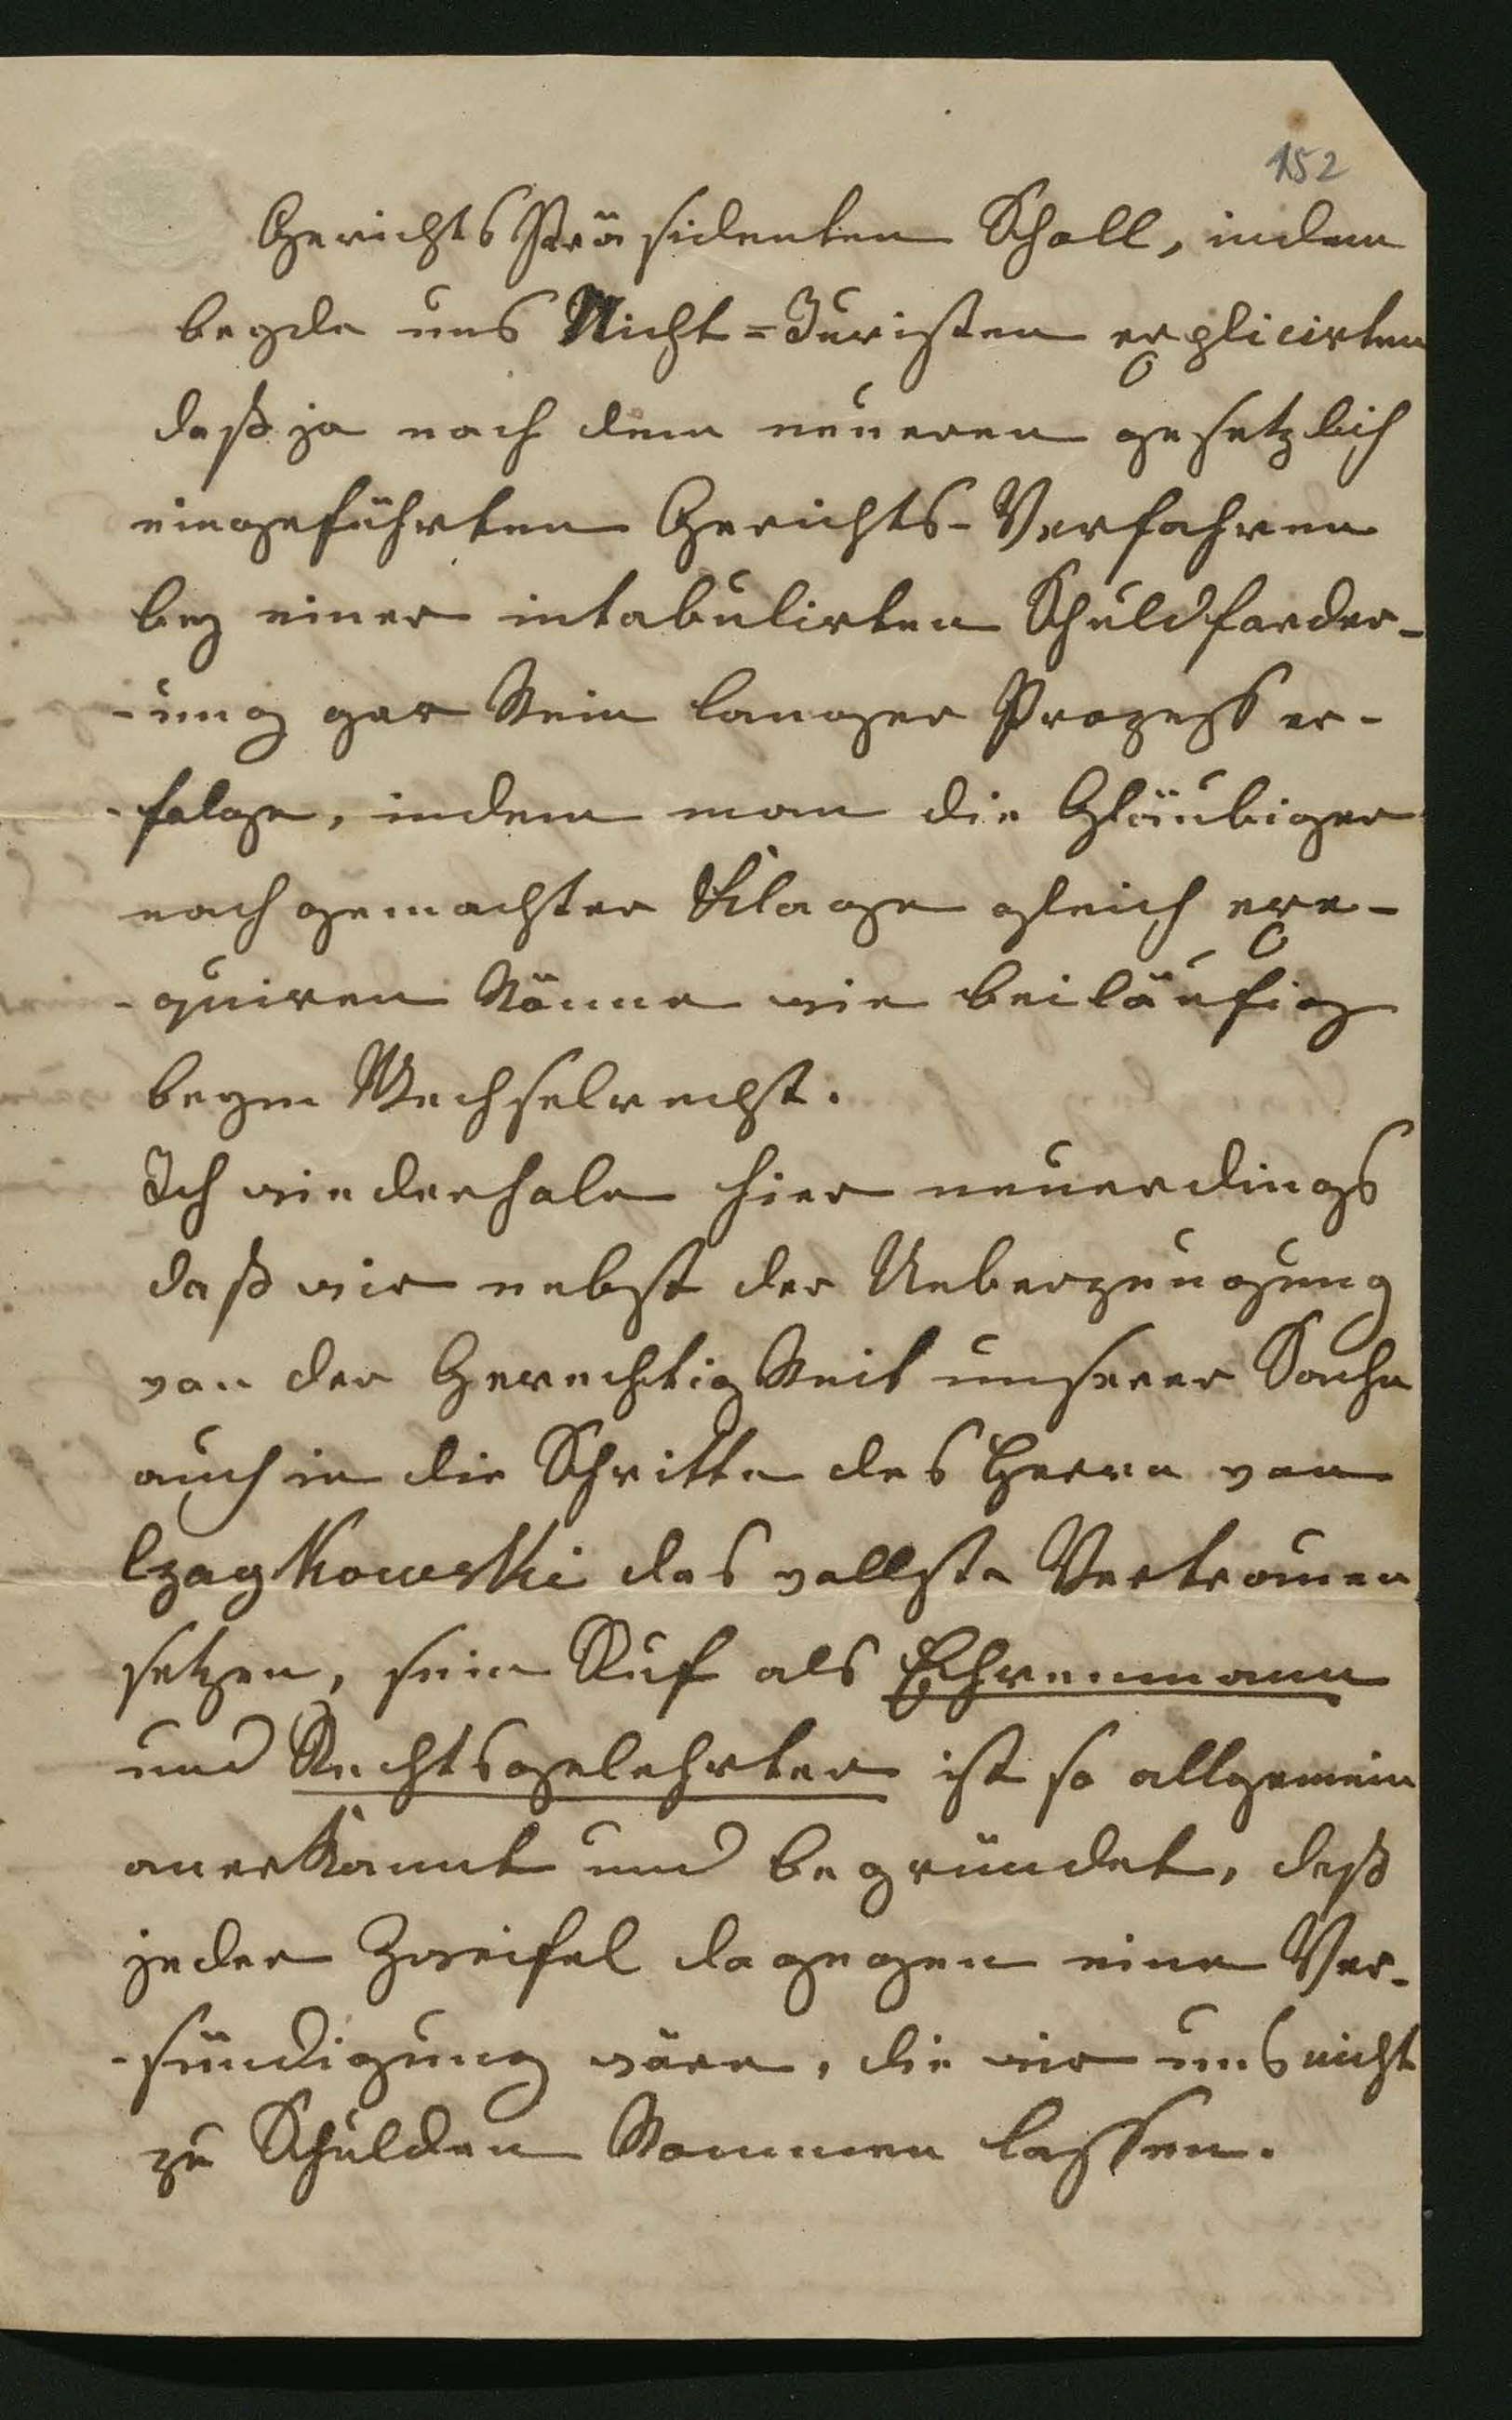 152
Gerichts Präsidenten Scholl, indem
beyde uns Nicht=Juristen explicirten
daß ja nach dem neueren gesetzlich
eingeführten Gerichts-Verfahren
bey einer intabulirten Schuldforder-
-ung gar kein langer Prozeß er-
-folge, indem man die Gläubiger
nach gemachter Klage gleich exe-
-quiren könne wie beiläufig
beym Wechselrecht.
Ich wiederhole hier neuerdings
daß wir nebst der Ueberzeugung
von der Gerechtigkeit unserer Sache
auch in die Schritte des Herrn von
Czaykowski das vollste Vertrauen
setzen, sein Ruf als Ehrenmann
und Rechtsgelehrter ist so allgemein
anerkannt und begründet, daß
jeder Zweifel dagegen eine Ver-
-sündigung wäre, die wir uns nicht
zu Schulden kommen lassen.